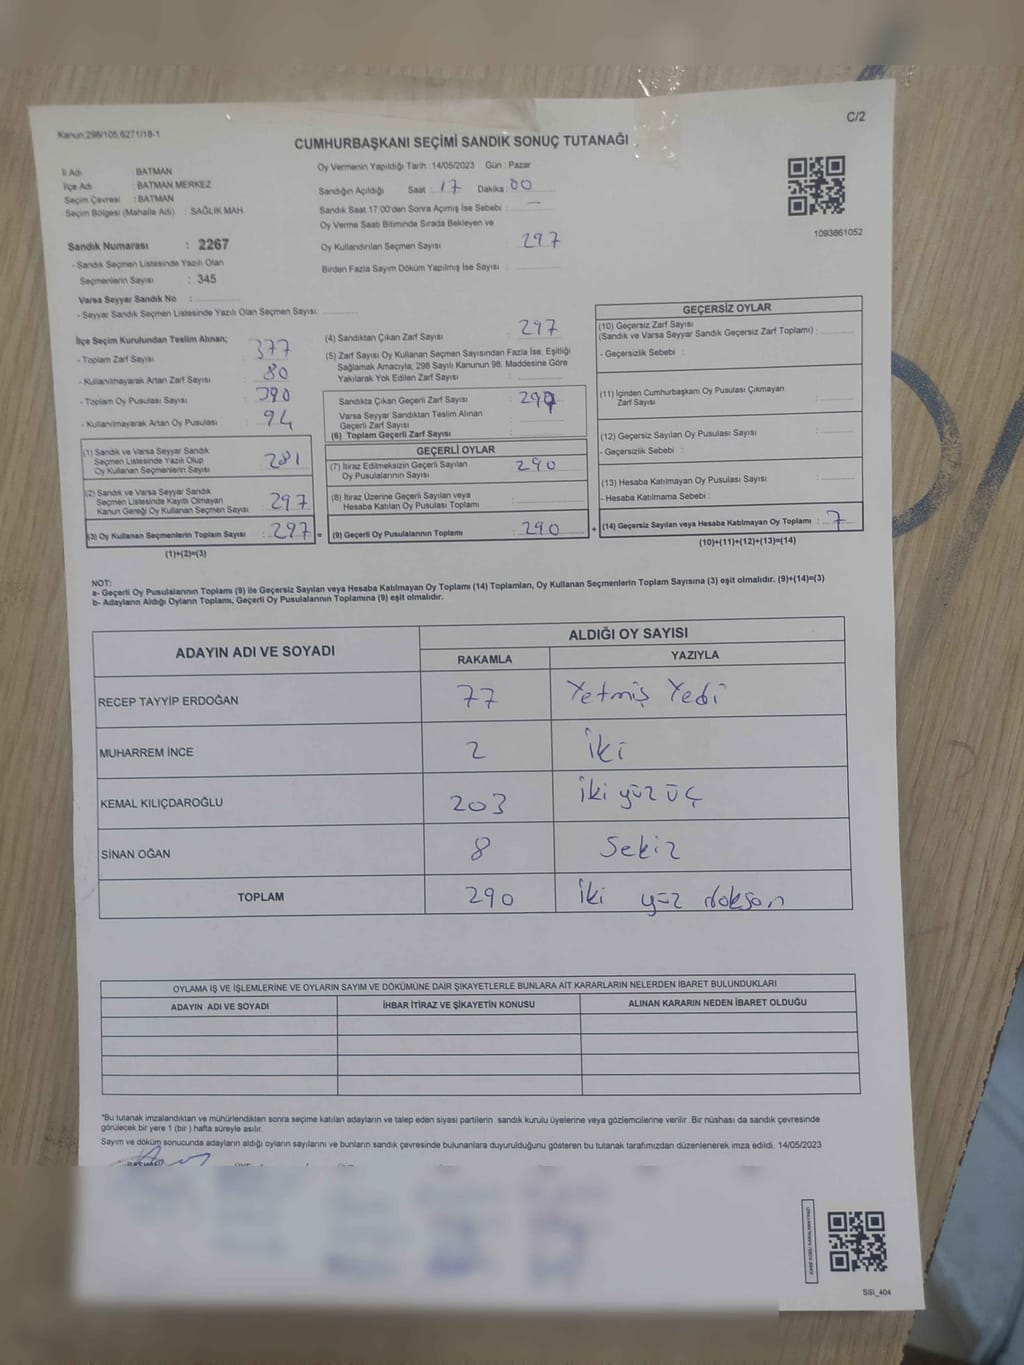 Kanun:298/105,6271/18-1
C/2
CUMHURBAŞKANI SEÇİMİ SANDIK SONUÇ TUTANAĞI
İl Adı : BATMAN
İlçe Adı : BATMAN MERKEZ
Seçim Çevresi : BATMAN
Seçim Bölgesi (Mahalle Adı) : SAĞLIK MAH.
Sandık Numarası : 2267
- Sandık Seçmen Listesinde Yazılı Olan
Seçmenlerin Sayısı : 345
Varsa Seyyar Sandık No :
- Seyyar Sandık Seçmen Listesinde Yazılı Olan Seçmen Sayısı:
Oy Vermenin Yapıldığı Tarih : 14/05/2023 Gün : Pazar
Sandığın Açıldığı Saat : 17 Dakika : 00
Sandık Saat 17:00'den Sonra Açımış İse Sebebi : —
Oy Verme Saati Bitiminde Sırada Bekleyen ve
Oy Kullandırılan Seçmen Sayısı : 297
Birden Fazla Sayım Döküm Yapılmış İse Sayısı :
1093861052
İlçe Seçim Kurulundan Teslim Alınan;
- Toplam Zarf Sayısı : 377
- Kullanılmayarak Artan Zarf Sayısı : 80
- Toplam Oy Pusulası Sayısı : 390
- Kullanılmayarak Artan Oy Pusulası : 94
(1) Sandık ve Varsa Seyyar Sandık
Seçmen Listesinde Yazılı Olup
Oy Kullanan Seçmenlerin Sayısı : 281
(2) Sandık ve Varsa Seyyar Sandık
Seçmen Listesinde Kayıtlı Olmayan
Kanun Gereği Oy Kullanan Seçmen Sayısı : 297
(3) Oy Kullanan Seçmenlerin Toplam Sayısı : 297 =
(1)+(2)=(3)
(4) Sandıktan Çıkan Zarf Sayısı : 297
(5) Zarf Sayısı Oy Kullanan Seçmen Sayısından Fazla İse, Eşitliği
Sağlamak Amacıyla, 298 Sayılı Kanunun 98. Maddesine Göre
Yakılarak Yok Edilen Zarf Sayısı :
Sandıkta Çıkan Geçerli Zarf Sayısı : 297
Varsa Seyyar Sandıktan Teslim Alınan
Geçerli Zarf Sayısı :
(6) Toplam Geçerli Zarf Sayısı :
GEÇERLİ OYLAR
(7) İtiraz Edilmeksizin Geçerli Sayılan
Oy Pusulalarının Sayısı : 290
(8) İtiraz Üzerine Geçerli Sayılan veya
Hesaba Katılan Oy Pusulası Toplamı :
(9) Geçerli Oy Pusulalarının Toplamı : 290 +
GEÇERSİZ OYLAR
(10) Geçersiz Zarf Sayısı
(Sandık ve Varsa Seyyar Sandık Geçersiz Zarf Toplamı) :
- Geçersizlik Sebebi :
(11) İçinden Cumhurbaşkanı Oy Pusulası Çıkmayan
Zarf Sayısı :
(12) Geçersiz Sayılan Oy Pusulası Sayısı :
- Geçersizlik Sebebi :
(13) Hesaba Katılmayan Oy Pusulası Sayısı :
- Hesaba Katılmama Sebebi :
(14) Geçersiz Sayılan veya Hesaba Katılmayan Oy Toplamı : 7
(10)+(11)+(12)+(13)=(14)
NOT:
a- Geçerli Oy Pusulalarının Toplamı (9) ile Geçersiz Sayılan veya Hesaba Katılmayan Oy Toplamı (14) Toplamları, Oy Kullanan Seçmenlerin Toplam Sayısına (3) eşit olmalıdır. (9)+(14)=(3)
b- Adayların Aldığı Oyların Toplamı, Geçerli Oy Pusulalarının Toplamına (9) eşit olmalıdır.
ADAYIN ADI VE SOYADI ALDIĞI OY SAYISI
RAKAMLA YAZIYLA
RECEP TAYYİP ERDOĞAN 77 Yetmiş Yedi
MUHARREM İNCE 2 İki
KEMAL KILIÇDAROĞLU 203 iki yüz üç
SİNAN OĞAN 8 Sekiz
TOPLAM 290 İki yüz doksan
OYLAMA İŞ VE İŞLEMLERİNE VE OYLARIN SAYIM VE DÖKÜMÜNE DAİR ŞİKAYETLERLE BUNLARA AİT KARARLARIN NELERDEN İBARET BULUNDUKLARI
ADAYIN ADI VE SOYADI İHBAR İTİRAZ VE ŞİKAYETİN KONUSU ALINAN KARARIN NEDEN İBARET OLDUĞU
"Bu tutanak imzalandıktan ve mühürlendikten sonra seçime katılan adayların ve talep eden siyasi partilerin sandık kurulu üyelerine veya gözlemcilerine verilir. Bir nüshası da sandık çevresinde
görülecek bir yere 1 (bir ) hafta süreyle asılır.
Sayım ve döküm sonucunda adayların aldığı oyların sayılarını ve bunların sandık çevresinde bulunanlara duyurulduğunu gösteren bu tutanak tarafımızdan düzenlenerek imza edildi. 14/05/2023
SSI_404